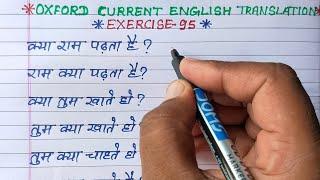 *OXFORD CURRENT ENGLISH TRANSLATION*
*EXERCISE-95*
क्या राम पढ़ता है ?
राम क्या पढ़ता है?
क्या तुम खाते हो ?
तुम क्या खाते हो
तुम क्या चाहते हो